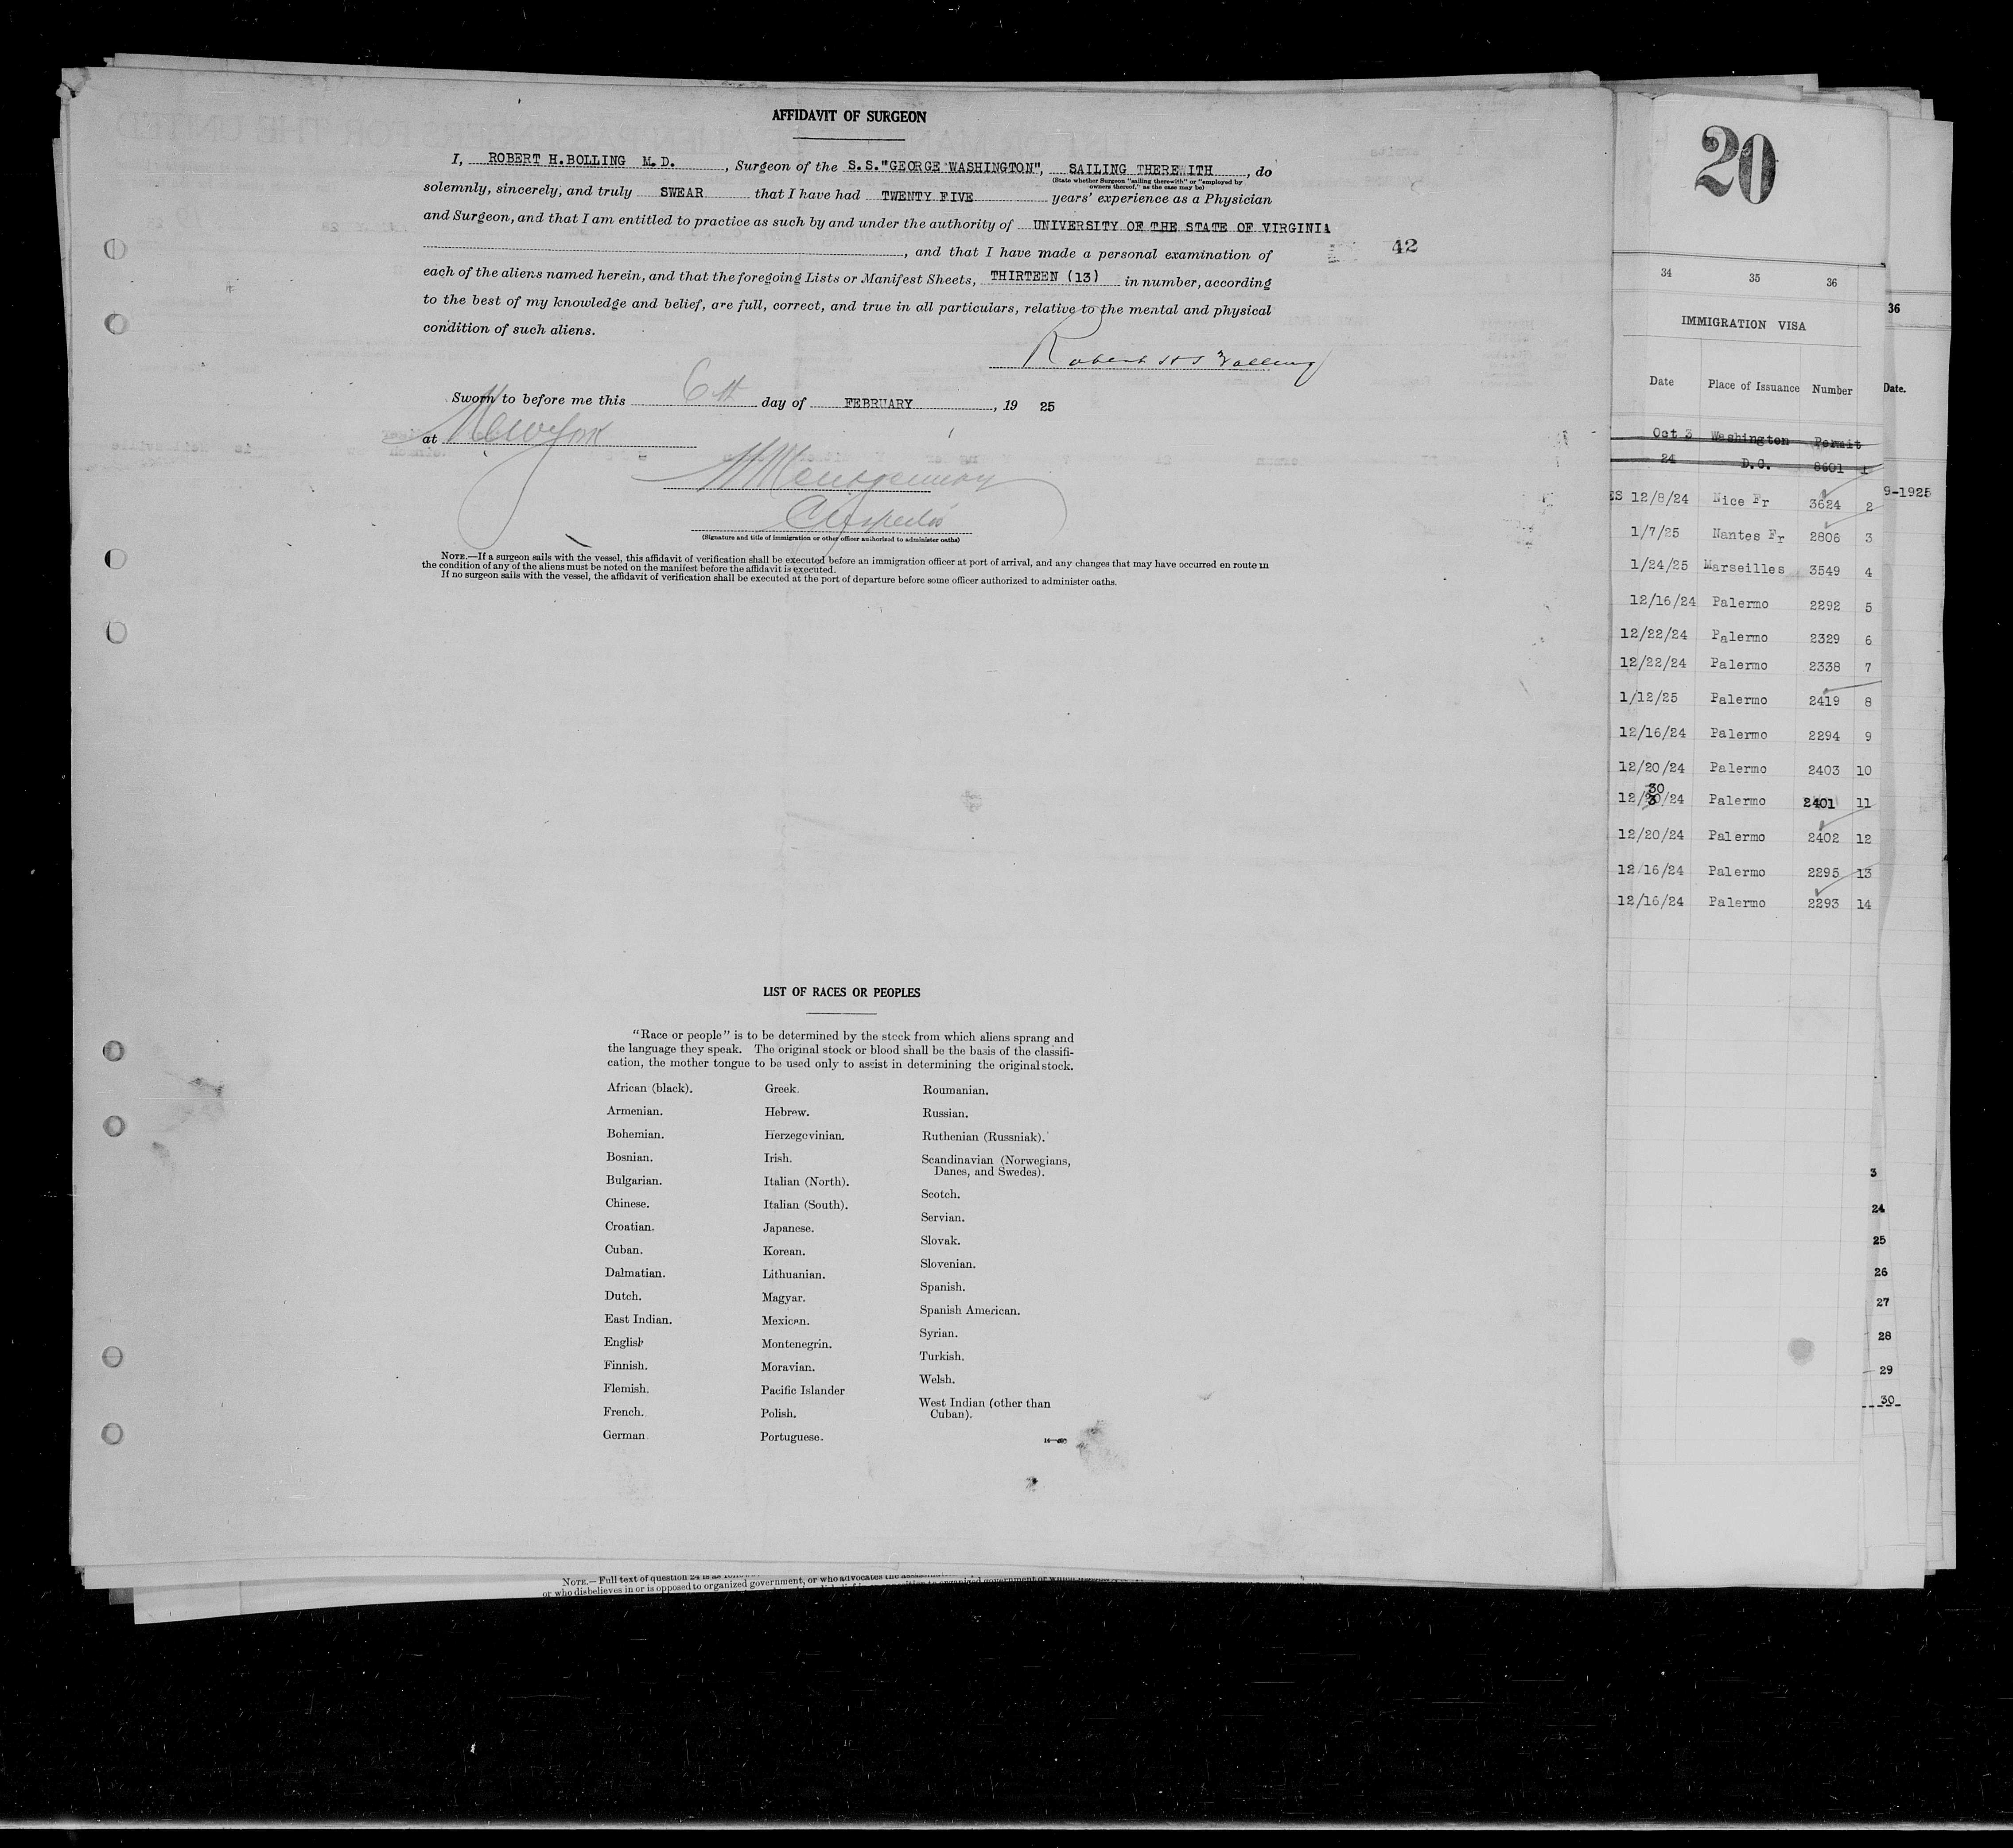 AFFIDAVIT OF SURGEON
I, ROBERT H.BOLLING M.D. , Surgeon of the S.S."GEORGE WASHINGTON", SAILING THEREWITH , do
(State whether Surgeon "sailing therewith" or "employed by
owners thereof," as the case may be)
solemnly, sincerely, and truly SWEAR that I have had TWENTY FIVE years' experience as a Physician
and Surgeon, and that I am entitled to practice as such by and under the authority of UNIVERSITY OF THE STATE OF VIRGINIA
, and that I have made a personal examination of
42
each of the aliens named herein, and that the foregoing Lists or Manifest Sheets, THIRTEEN (13) in number, according
to the best of my knowledge and belief, are full, correct, and true in all particulars, relative to the mental and physical
condition of such aliens.
Sworn to before me this 6th day of FEBRUARY , 19 25
at New York
(Signature and title of immigration or other officer authorized to administer oaths)
NOTE.—If a surgeon sails with the vessel, this affidavit of verification shall be executed before an immigration officer at port of arrival, and any changes that may have occurred en route in
the condition of any of the aliens must be noted on the manifest before the affidavit is executed.
If no surgeon sails with the vessel, the affidavit of verification shall be executed at the port of departure before some officer authorized to administer oaths.
LIST OF RACES OR PEOPLES
"Race or people" is to be determined by the stock from which aliens sprang and
the language they speak. The original stock or blood shall be the basis of the classifi-
cation, the mother tongue to be used only to assist in determining the original stock.
African (black).
Armenian.
Bohemian.
Bosnian.
Bulgarian.
Chinese.
Croatian.
Cuban.
Dalmatian.
Dutch.
East Indian.
English
Finnish.
Flemish.
French.
German
Greek.
Hebrew.
Herzegovinian.
Irish.
Italian (North).
Italian (South).
Japanese.
Korean.
Lithuanian.
Magyar.
Mexican.
Montenegrin.
Moravian.
Pacific Islander
Polish.
Portuguese.
Roumanian.
Russian.
Ruthenian (Russniak).
Scandinavian (Norwegians,
Danes, and Swedes).
Scotch.
Servian.
Slovak.
Slovenian.
Spanish.
Spanish American.
Syrian.
Turkish.
Welsh.
West Indian (other than
Cuban).
NOTE.—Full text of question 24 is as
or who disbelieves in or is opposed to organized government, or who advocates the
20
34 35 36
IMMIGRATION VISA
Date Place of Issuance Number
Oct 3 Washington Permit
24 D.C. 8601 1
ES 12/8/24 Nice Fr 3624 2
1/7/25 Nantes Fr 2806 3
1/24/25 Marseilles 3549 4
12/16/24 Palermo 2292 5
12/22/24 Palermo 2329 6
12/22/24 Palermo 2338 7
1/12/25 Palermo 2419 8
12/16/24 Palermo 2294 9
12/20/24 Palermo 2403 10
30
12/30/24 Palermo 2401 11
12/20/24 Palermo 2402 12
12/16/24 Palermo 2295 13
12/16/24 Palermo 2293 14
36
Date.
9-1925
3
24
25
26
27
28
29
30